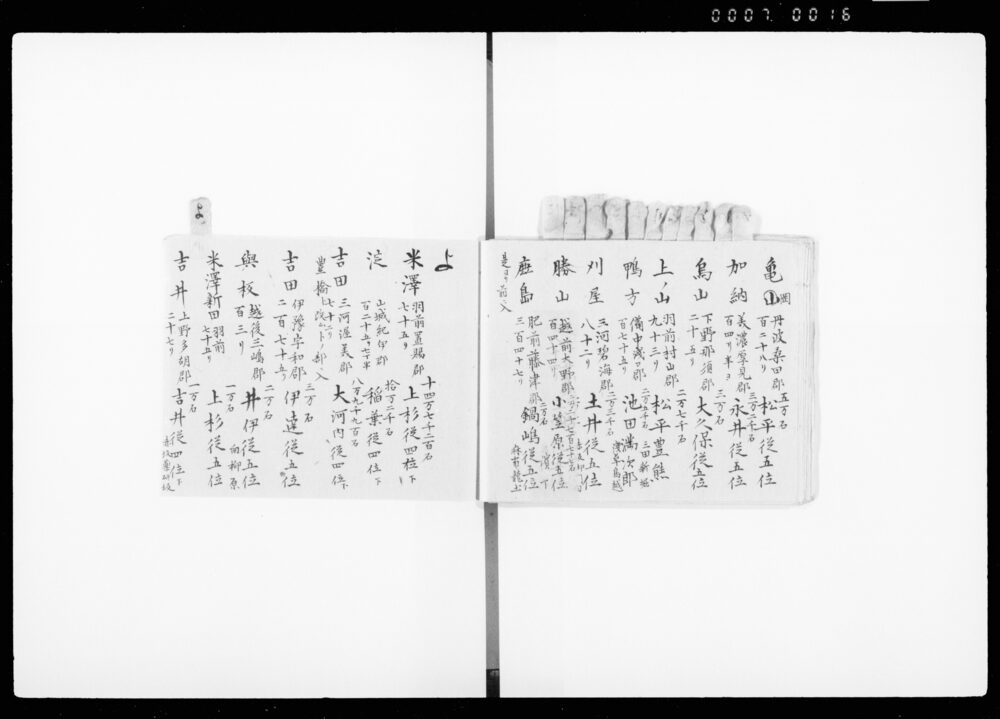 0007 0016
亀山 岡 丹波桑田郡 五万石 松平従五位
百二十八り
加納 美濃厚見郡 三万二千石 永井従五位
百四り半ヨ
烏山 下野那須郡 三万石 大久保従五位
二十五り
上ノ山 羽前村山郡 二万七千石 松平豊熊
九十三り 三田新堀
鴨方 備中浅口郡 二万五千石 池田満次郎
百七十五り 浅草鳥越
刈屋 三河碧海郡 二万三千石 土井従五位
八十二り
勝山 越前大野郡 二万二千七百七十七石 小笠原従五位
百四十四り
鹿島 肥前藤津郡 二万石 鍋嶋従五位
三百四十七り 麻布龍土
是ヨリ前ニ入
よ
よ
米澤 羽前置賜郡 十四万七千二百石 上杉従四位下
七十五り
淀 山城紀伊郡 拾万二千石 稲葉従四位下
百二十五り七丁半
吉田 三河渥美郡 八万九千九百石 大河内従四位下
七十二り
豊橋ト改ム トノ部ニ入
吉田 伊豫宇和郡 三万石 伊達従五位
二百七十五り
與板 越後三嶋郡 二万石 井伊従五位
百三り 向柳原
米澤新田 羽前 一万石 上杉従五位
七十五り
吉井 上野多胡郡 一万石 吉井従四位下
二十七り